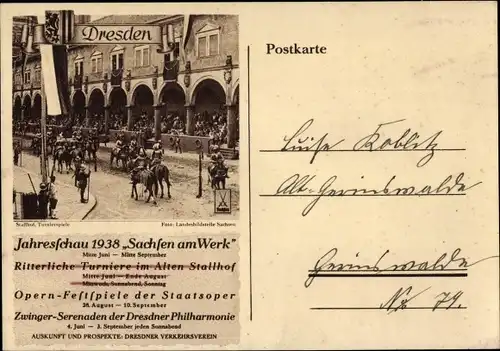 Dresden
Stallhof, Turnierspiele
Foto: Landesbildstelle Sachsen
Jahresschau 1938 „Sachsen am Werk“
Mitte Juni — Mitte September
Ritterliche Turniere im Alten Stallhof
Mitte Juni — Ende August
Mittwoch, Sonnabend, Sonntag
Opern-Festspiele der Staatsoper
28. August — 10. September
Zwinger-Serenaden der Dresdner Philharmonie
4. Juni — 3. September jeden Sonnabend
AUSKUNFT UND PROSPEKTE: DRESDNER VERKEHRSVEREIN
Postkarte
Luise Koblitz
Alt-Geringswalde
Geringswalde
No 74.